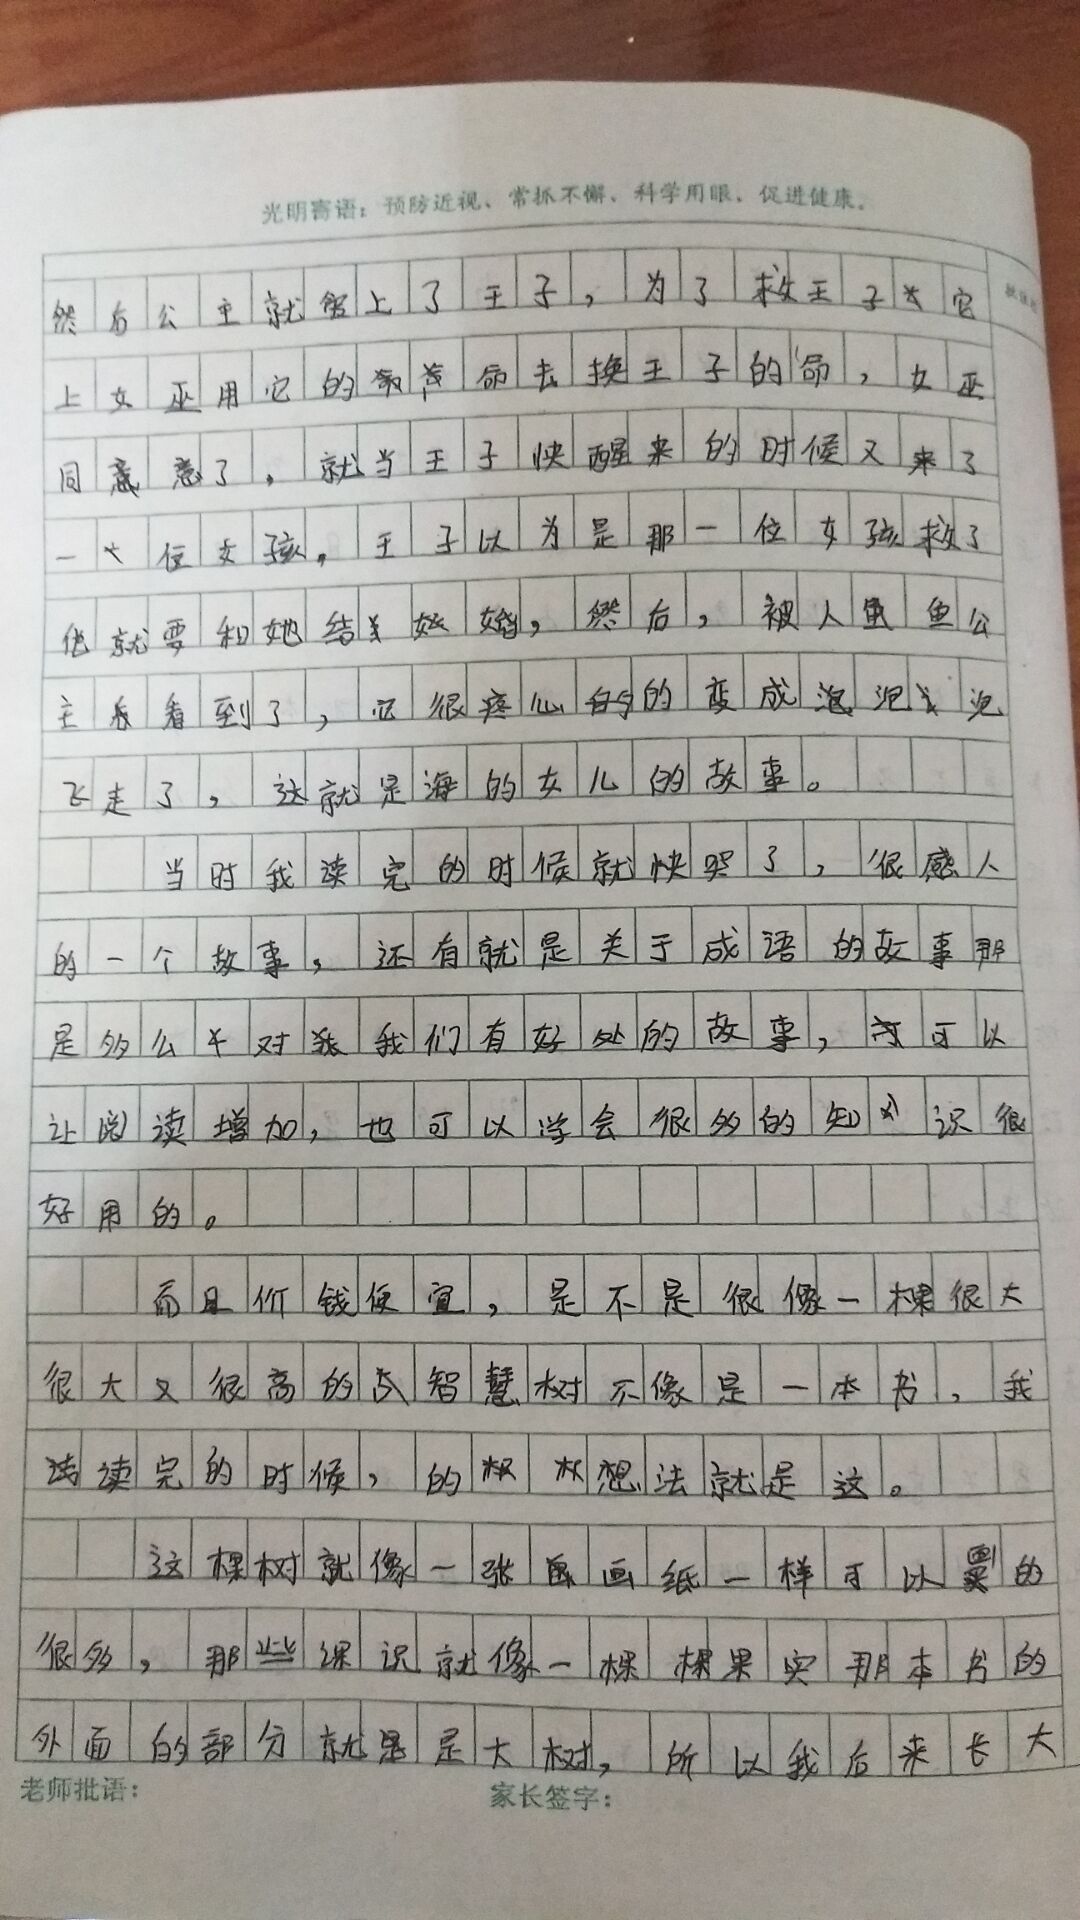 光明寄语：预防近视、常抓不懈、科学用眼、促进健康。
然后公主就爱上了王子，为了救王子它
上女巫用它的命去换王子的命，女巫
同意了，就当王子快醒来的时候又来了
一位女孩，王子以为是那一位女孩救了
他就要和她结婚，然后，被人鱼公
主看到了，它很疼心的变成泡泡
飞走了，这就是海的女儿的故事。
当时我读完的时候就快哭了，很感人
的一个故事，还有就是关于成语的故事那
是多么对我们有好处的故事，可以
让阅读增加，也可以学会很多的知识很
好用的。
而且价钱便宜，是不是很像一棵很大
很大又很高的智慧树不像是一本书，我
读完的时候，的想法就是这。
这棵树就像一张画纸一样可以画的
很多，那些课识就像一棵棵果实那本书的
外面的部分就是是大树，所以我后来长大
老师批语：
家长签字：